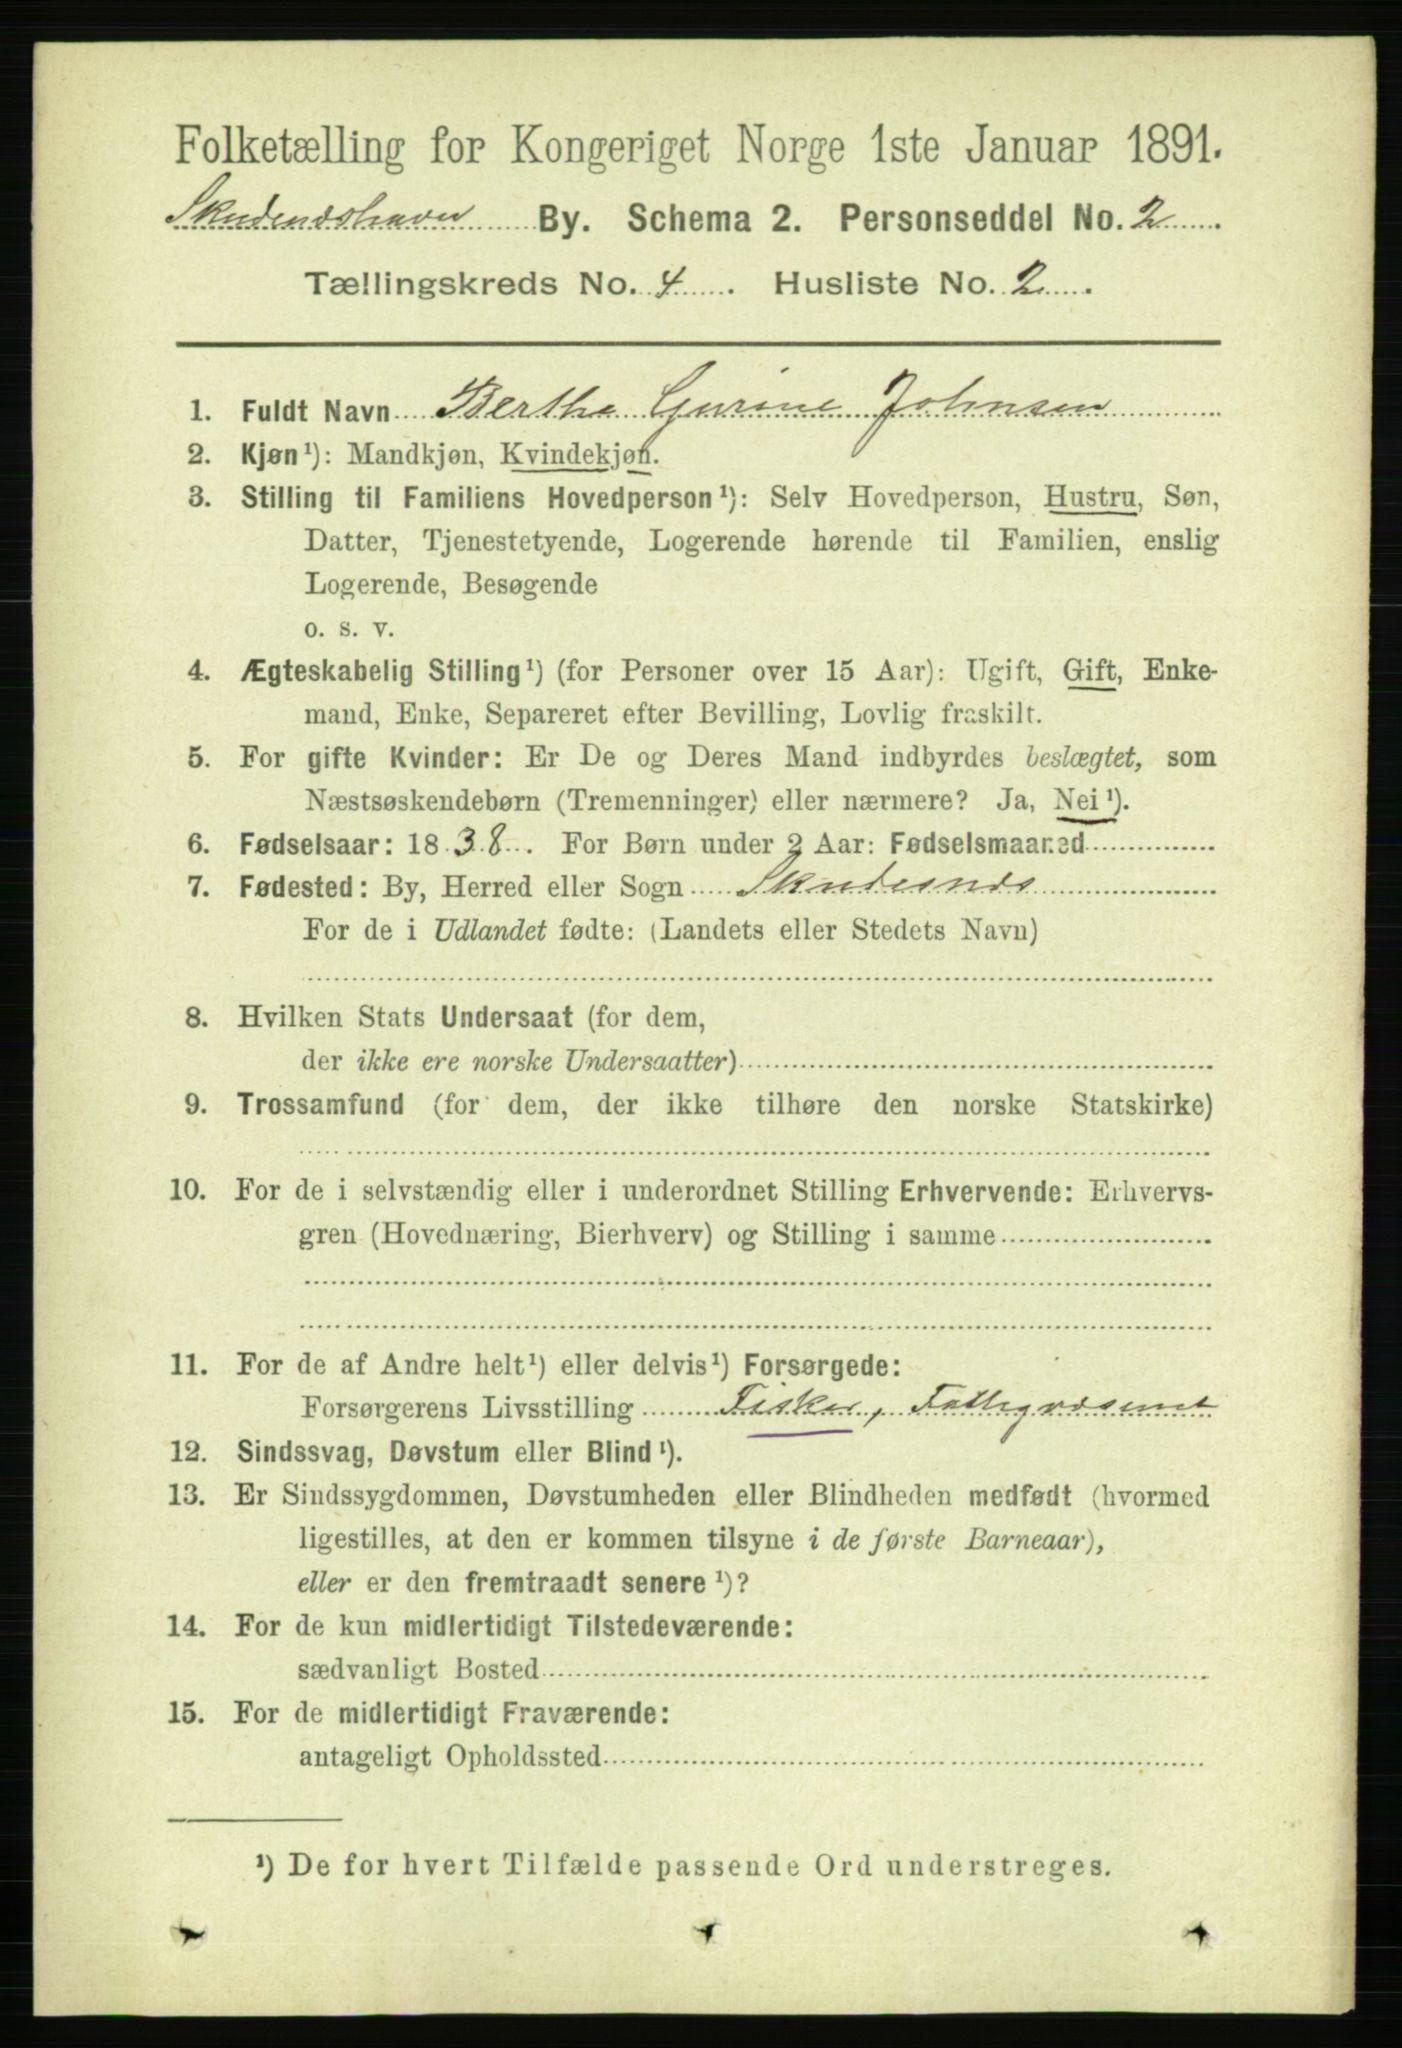 Folketælling for Kongeriget Norge 1ste Januar 1891.
Skudeneshavn By. Schema 2. Personseddel No. 2
Tællingskreds No. 4. Husliste No. 2.
1. Fuldt Navn Berthe Gurine Johnsen
2. Kjøn¹): Mandkjøn, Kvindekjøn.
3. Stilling til Familiens Hovedperson¹): Selv Hovedperson, Hustru, Søn,
Datter, Tjenestetyende, Logerende hørende til Familien, enslig
Logerende, Besøgende
o. s. v.
4. Ægteskabelig Stilling¹) (for Personer over 15 Aar): Ugift, Gift, Enke-
mand, Enke, Separeret efter Bevilling, Lovlig fraskilt.
5. For gifte Kvinder: Er De og Deres Mand indbyrdes beslægtet, som
Næstsøskendebørn (Tremenninger) eller nærmere? Ja, Nei¹).
6. Fødselsaar: 1838. For Børn under 2 Aar: Fødselsmaaned
7. Fødested: By, Herred eller Sogn Skudesnes
For de i Udlandet fødte: (Landets eller Stedets Navn)
8. Hvilken Stats Undersaat (for dem,
der ikke ere norske Undersaatter)
9. Trossamfund (for dem, der ikke tilhøre den norske Statskirke)
10. For de i selvstændig eller i underordnet Stilling Erhvervende: Erhvervs-
gren (Hovednæring, Bierhverv) og Stilling i samme
11. For de af Andre helt¹) eller delvis¹) Forsørgede:
Forsørgerens Livsstilling Fisker, Fattigvæsenet
12. Sindssvag, Døvstum eller Blind¹).
13. Er Sindssygdommen, Døvstumheden eller Blindheden medfødt (hvormed
ligestilles, at den er kommen tilsyne i de første Barneaar),
eller er den fremtraadt senere¹)?
14. For de kun midlertidigt Tilstedeværende:
sædvanligt Bosted
15. For de midlertidigt Fraværende:
antageligt Opholdssted
¹) De for hvert Tilfælde passende Ord understreges.